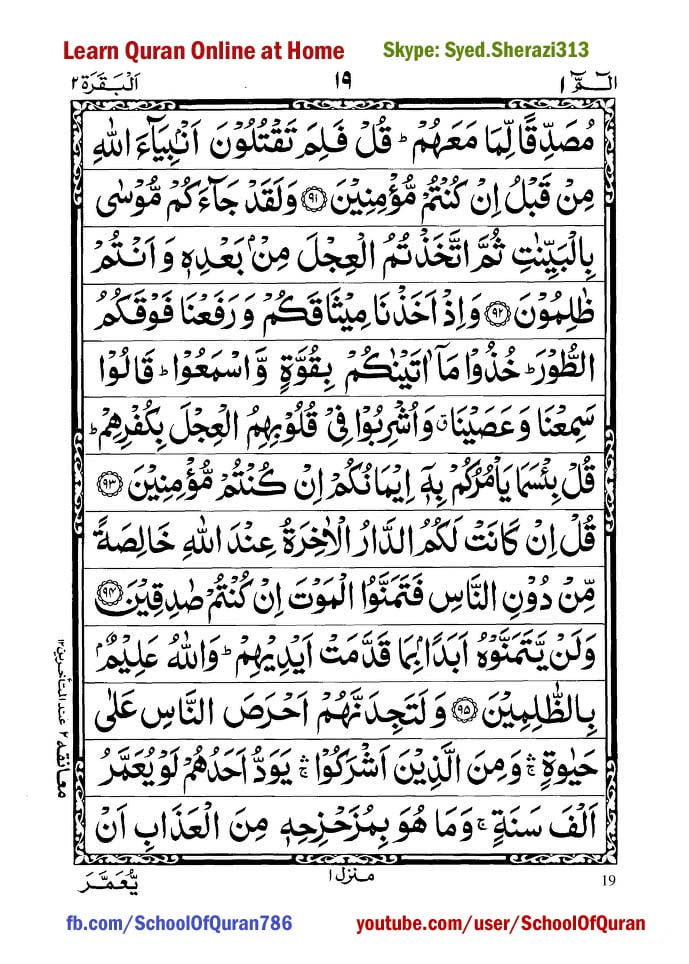 Learn Quran Online at Home Skype: Syed.Sherazi313
الٓمّٓ ١ ١٩ اَلْبَقَرَة ٢
مُصَدِّقًا لِّمَا مَعَهُمْ ؕ قُلْ فَلِمَ تَقْتُلُوْنَ اَنْۢبِيَآءَ اللّٰهِ
مِنْ قَبْلُ اِنْ كُنْتُمْ مُّؤْمِنِيْنَ ۝٩١ وَلَقَدْ جَآءَكُمْ مُّوْسٰى
بِالْبَيِّنٰتِ ثُمَّ اتَّخَذْتُمُ الْعِجْلَ مِنْۢ بَعْدِهٖ وَاَنْتُمْ
ظٰلِمُوْنَ ۝٩٢ وَاِذْ اَخَذْنَا مِيْثَاقَكُمْ وَرَفَعْنَا فَوْقَكُمُ
الطُّوْرَ ؕ خُذُوْا مَاۤ اٰتَيْنٰكُمْ بِقُوَّةٍ وَّاسْمَعُوْا ؕ قَالُوْا
سَمِعْنَا وَعَصَيْنَا ۗ وَاُشْرِبُوْا فِيْ قُلُوْبِهِمُ الْعِجْلَ بِكُفْرِهِمْ ؕ
قُلْ بِئْسَمَا يَاْمُرُكُمْ بِهٖۤ اِيْمَانُكُمْ اِنْ كُنْتُمْ مُّؤْمِنِيْنَ ۝٩٣
قُلْ اِنْ كَانَتْ لَكُمُ الدَّارُ الْاٰخِرَةُ عِنْدَ اللّٰهِ خَالِصَةً
مِّنْ دُوْنِ النَّاسِ فَتَمَنَّوُا الْمَوْتَ اِنْ كُنْتُمْ صٰدِقِيْنَ ۝٩٤
وَلَنْ يَّتَمَنَّوْهُ اَبَدًۢا بِمَا قَدَّمَتْ اَيْدِيْهِمْ ؕ وَاللّٰهُ عَلِيْمٌۢ
بِالظّٰلِمِيْنَ ۝٩٥ وَلَتَجِدَنَّهُمْ اَحْرَصَ النَّاسِ عَلٰى
حَيٰوةٍ ۛۚ وَمِنَ الَّذِيْنَ اَشْرَكُوْا ۛۚ يَوَدُّ اَحَدُهُمْ لَوْ يُعَمَّرُ
اَلْفَ سَنَةٍ ۚ وَمَا هُوَ بِمُزَحْزِحِهٖ مِنَ الْعَذَابِ اَنْ
معانقه ٢ عند المتأخرين ١٢
منزل ١
يُّعَمَّرَ
19
fb.com/SchoolOfQuran786 youtube.com/user/SchoolOfQuran